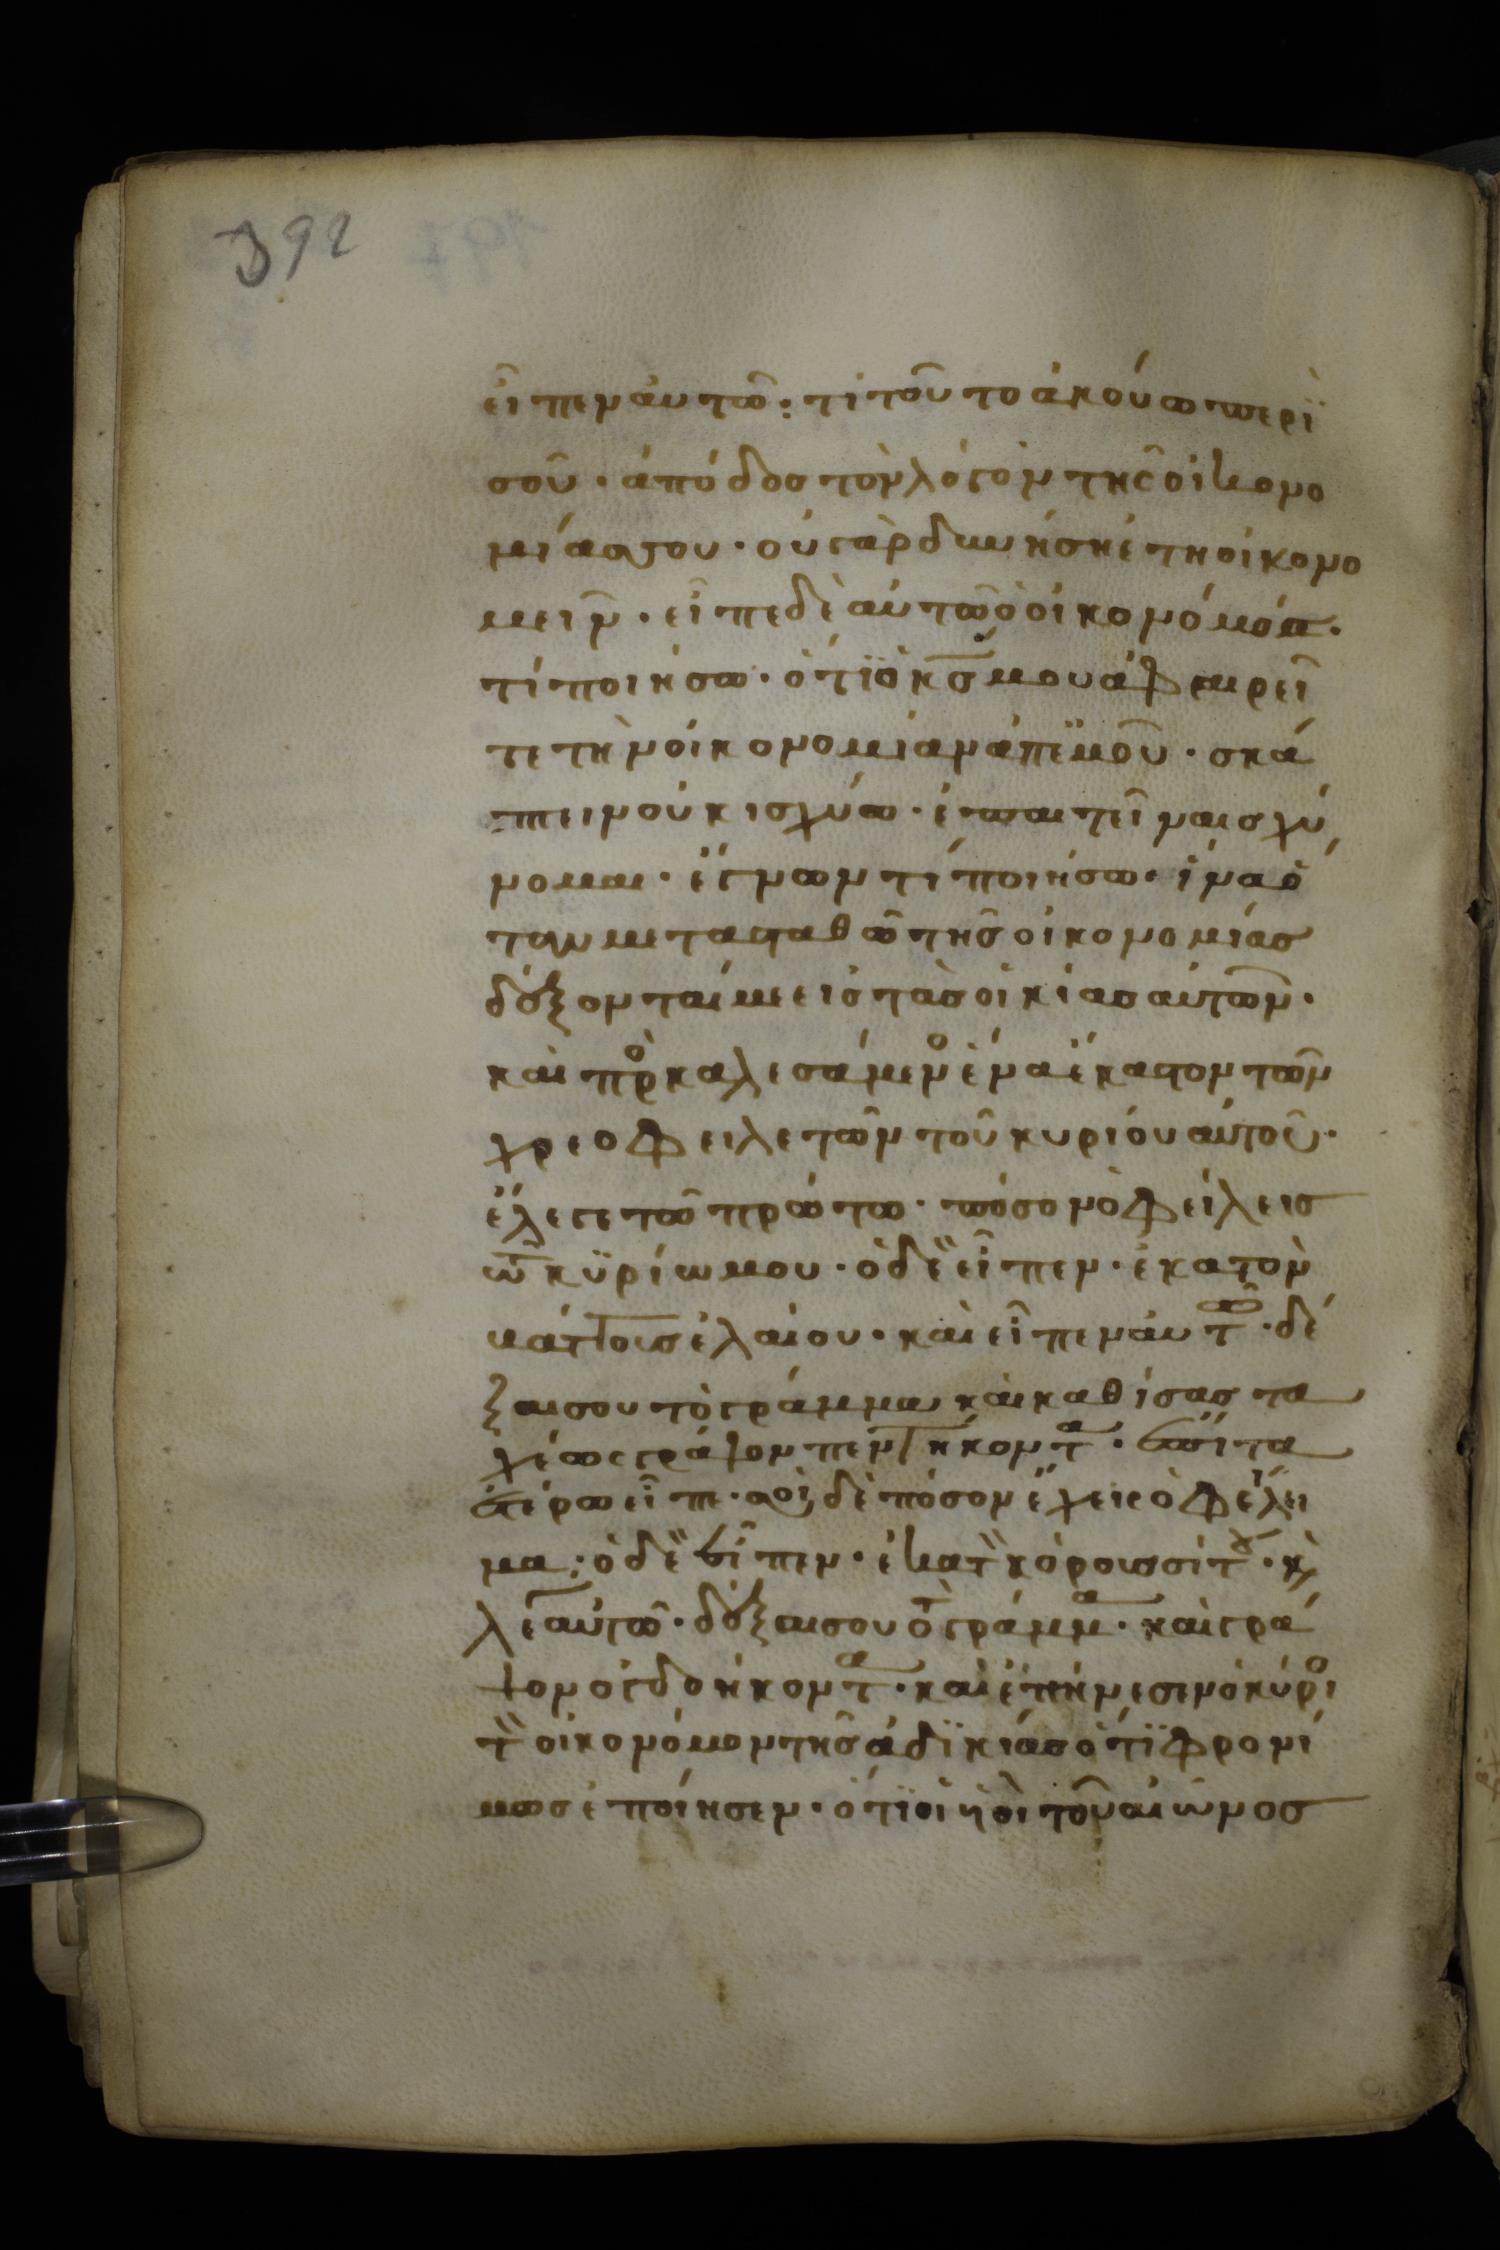 392
εἶπεν αὐτῶ: τί τοῦτο ἀκούω περὶ
σοῦ · ἀπόδος τὸν λόγον τῆς οἰκονο
μίας σου · οὐ γὰρ δυνήσηέτη οἰκονο
μεῖν · εἶπε δὲ αὐτῶ ὁ οἰκονόμος ·
τί ποιήσω · ὅτι ὁ κς μου ἀφαιρεῖ
τε τὴν οἰκονομίαν ἀπ' ἐμοῦ · σκά
πτειν οὐκ ισχύω · ἐπαιτεῖν αισχύ
νομαι · ἔγνων τί ποιήσω · ἵνα ὅ
ταν μετασταθῶ τῆς οἰκονομίας
δέξονταί με εἰς τὰς οἰκίας αὐτῶν ·
καὶ προκαλεσάμενο ἕνα ἕκαστον τῶν
χρεοφειλετῶν τοῦ κυρίου αὐτοῦ ·
ἔλεγε τῶ πρώτω · πόσον ὀφείλεις
τῶ κυρίω μου · ὁ δὲ εἶπεν · ἑκατὸν
βάτους ἐλαίου · καὶ εἶπεν αὐτῶ · δέ
ξαι σου τὸ γράμμα καὶ καθίσας τα
χέως γράψον πεντήκοντα · ἔπιτα
ἑτέρω εἶπε · σοὶ δὲ πόσον ἔχεις ὀφείλει
μα: ὁ δὲ εἶπεν · ἑκατ κόρους σίτου · κ
λέ αὐτῶ · δέξαι σου τὸ γράμμα · καὶ γρά
ψον ὀγδοήκοντα · καὶ ἐπήνεσεν ὁ κύριο
τ οἰκονόμον τῆς ἀδικίας ὅτι φρονί
μως ἐποίησεν · ὅτι οἱ ὑοὶ τοῦ αἰῶνος